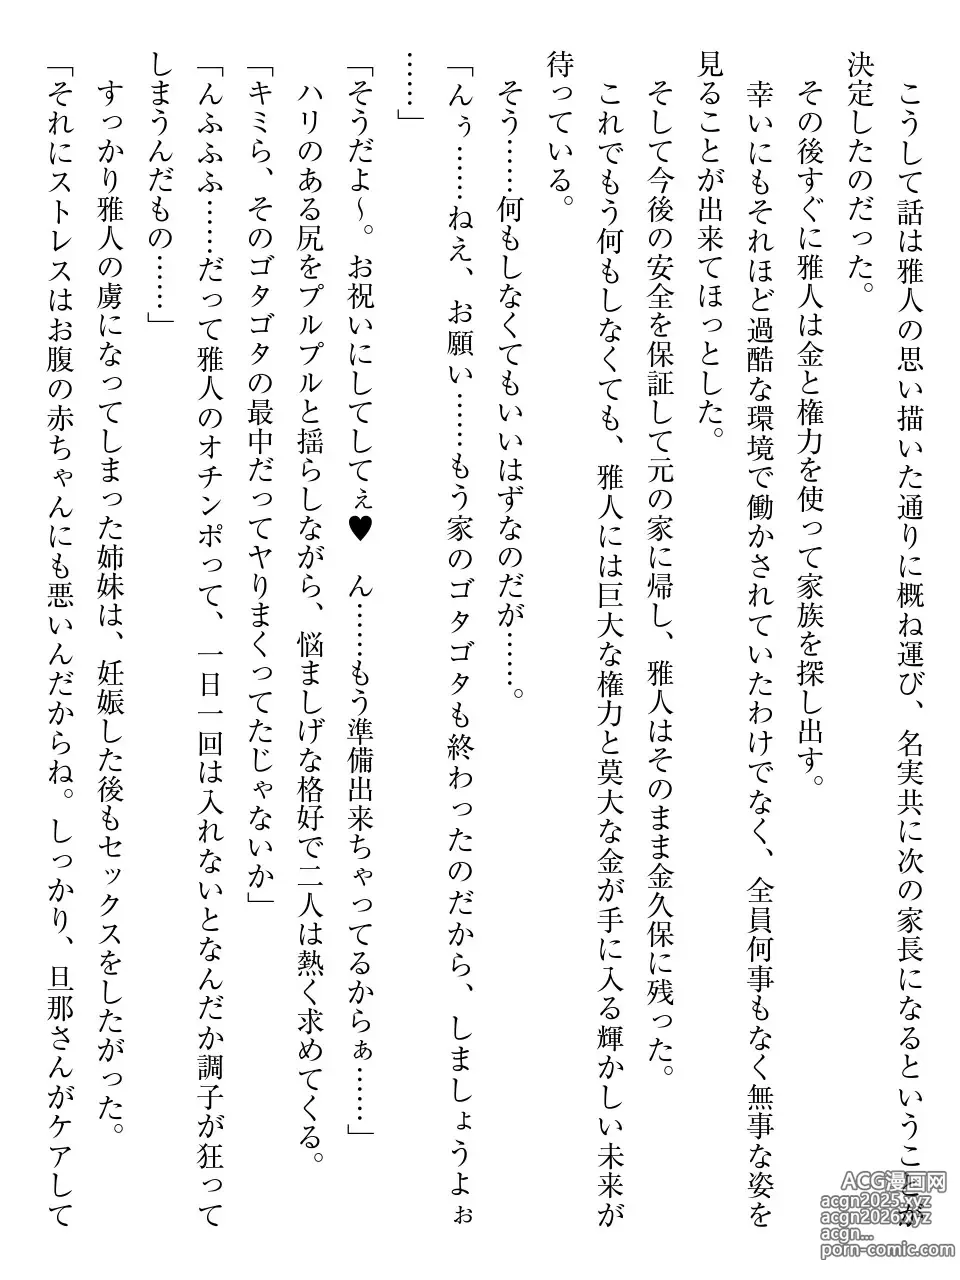 こうして話は雅人の思い描いた通りに概ね運び、名実共に次の家長になるということが
決定したのだった。
その後すぐに雅人は金と権力を使って家族を探し出す。
幸いにもそれほど過酷な環境で働かされていたわけでなく、全員何事もなく無事な姿を
見ることが出来てほっとした。
そして今後の安全を保証して元の家に帰し、雅人はそのまま金久保に残った。
これでもう何もしなくても、雅人には巨大な権力と莫大な金が手に入る輝かしい未来が
待っている。
そう……何もしなくてもいいはずなのだが……。
「んぅ……ねえ、お願い……もう家のゴタゴタも終わったのだから、しましょうよぉ
……」
「そうだよ～。お祝いにしてしてぇ♥　ん……もう準備出来ちゃってるからぁ……」
ハリのある尻をプルプルと揺らしながら、悩ましげな格好で二人は熱く求めてくる。
「キミら、そのゴタゴタの最中だってヤりまくってたじゃないか」
「んふふふ……だって雅人のオチンポって、一日一回は入れないとなんだか調子が狂って
しまうんだもの……」
すっかり雅人の虜になってしまった姉妹は、妊娠した後もセックスをしたがった。
「それにストレスはお腹の赤ちゃんにも悪いんだからね。しっかり、旦那さんがケアして
ACG漫画网
acgn2025.xyz
acgn2026.xyz
acgn...
porn-comic.com